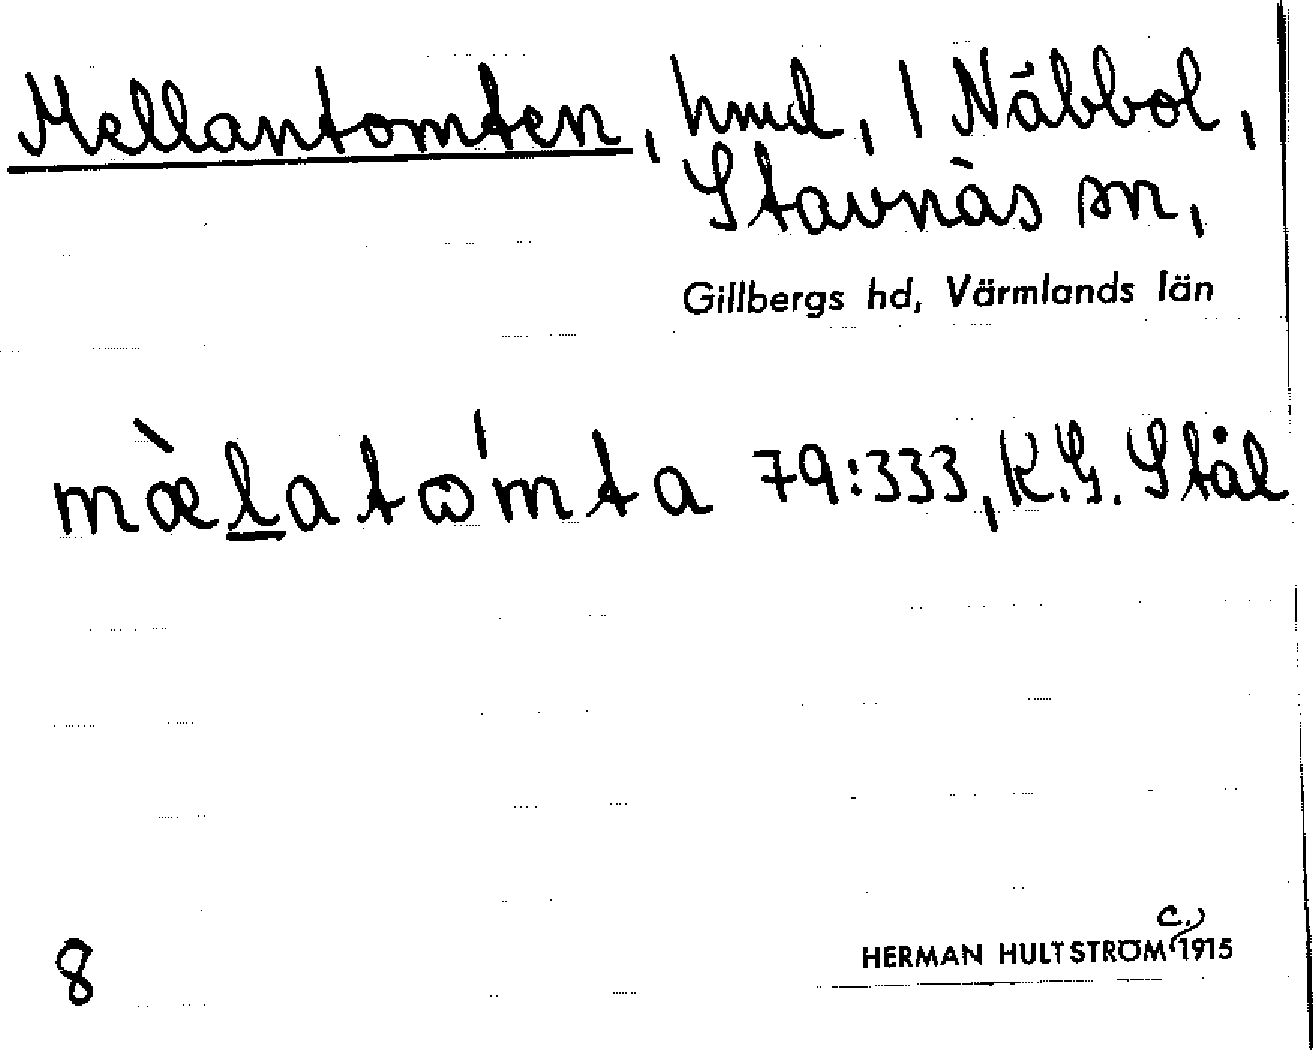 Mellantomten, hmd, 1 Näbbol,
Stavnäs sn,
Gillbergs hd, Värmlands län
mæ̀l̲atω̍mta 79:333, K.G. Stål
8
c.)
HERMAN HULTSTRÖM 1915